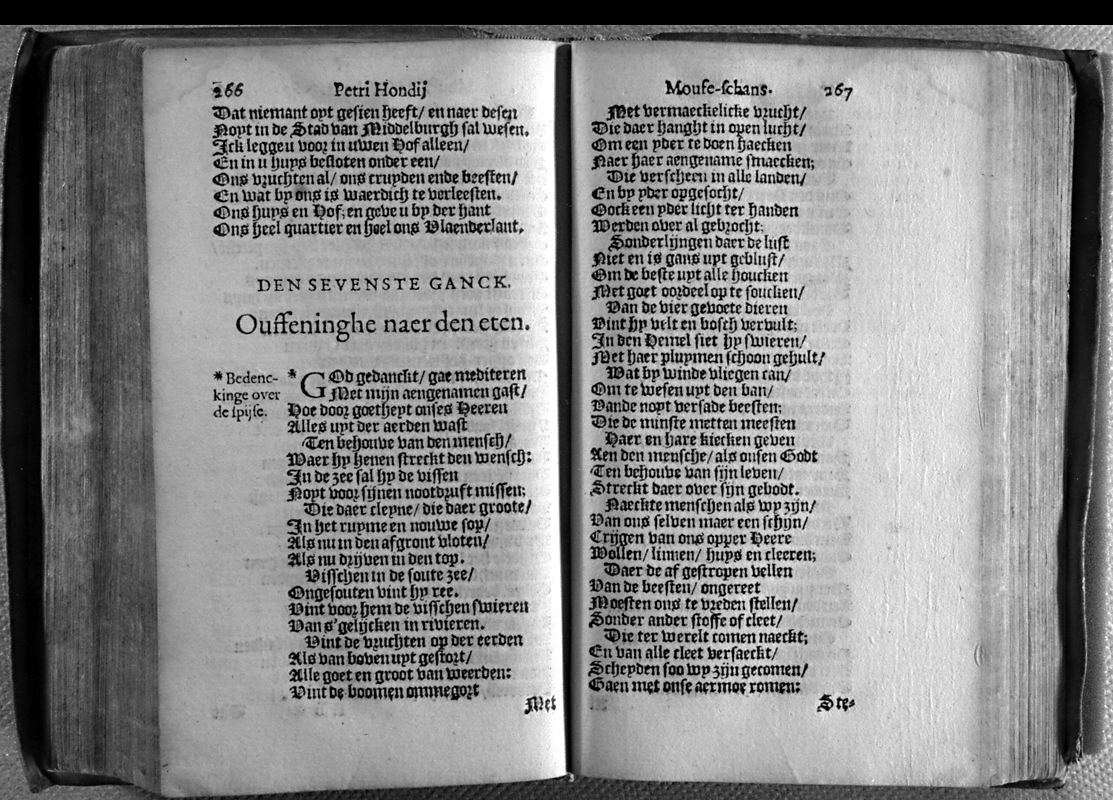 266 Petri Hondij
Dat niemant oyt gesien heeft/ en naer desen
Noyt in de Stad van Middelburgh sal wesen.
Ick legge u voor in uwen Hof alleen/
En in u huys besloten onder een/
Ons vruchten al/ ons cruyden ende beesten/
En wat by ons is waerdich te verleesten.
Ons huys en Hof; en geve u by der hant
Ons heel quartier en heel ons Vlaenderlant.
DEN SEVENSTE GANCK.
Ouffeninghe naer den eten.
* Bedenc-
kinge over
de spijse.
* GOd gedanckt/ gae mediteren
Met mijn aengenamen gast/
Hoe door goetheyt onses Heeren
Alles uyt der aerden wast
Ten behouve van den mensch/
Waer hy henen streckt den wensch:
In de zee sal hy de vissen
Noyt voor sijnen nootdruft missen;
Die daer cleyne/ die daer groote/
In het ruyme en nouwe sop/
Als nu in den afgront vloten/
Als nu drijven in den top.
Visschen in de soute zee/
Ongesouten vint hy ree.
Vint voor hem de visschen swieren
Van s'gelijcken in rivieren.
Vint de vruchten op der eerden
Als van boven uyt gestort/
Alle goet en groot van weerden:
Vint de boomen ommegort
Met
Moufe-schans. 267
Met vermaeckelicke vrucht/
Die daer hanght in open lucht/
Om een yder te doen haecken
Naer haer aengename smaecken;
Die verscheen in alle landen/
En by yder opgesocht/
Oock een yder licht ter handen
Werden over al gebrocht:
Sonderlijngen daer de lust
Niet en is gans uyt geblust/
Om de beste uyt alle houcken
Met goet oordeel op te soucken/
Van de vier gevoete dieren
Vint hy velt en bosch vervult;
In den Hemel siet hy swieren/
Met haer pluymen schoon gehult/
Wat by winde vliegen can/
Om te wesen uyt den ban/
Vande noyt versade beesten;
Die de minste metten meesten
Haer en hare kiecken geven
Aen den mensche/ als onsen Godt
Ten behouve van sijn leven/
Streckt daer over sijn gebodt.
Naeckte menschen als wy zijn/
Van ons selven maer een schijn/
Crijgen van ons opper Heere
Wollen/ linnen/ huys en cleeren;
Daer de af gestropen vellen
Van de beesten/ ongereet
Moesten ons te vreden stellen/
Sonder ander stoffe of cleet/
Die ter werelt comen naeckt;
En van alle cleet versaeckt/
Scheyden soo wy zijn gecomen/
Gaen met onse aermoe romen:
Ste-